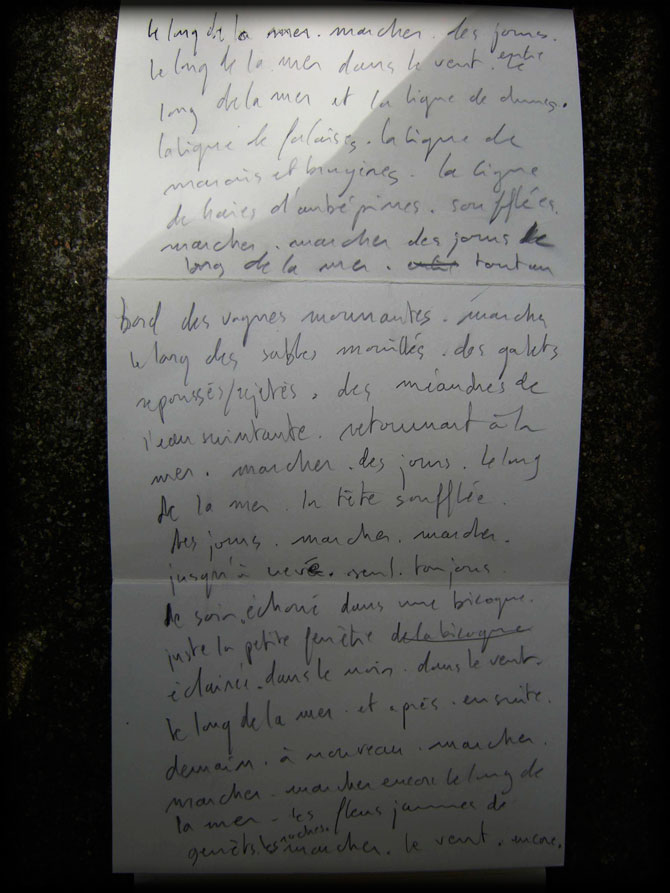 le long de la mer. marcher. des jours.
le long de la mer dans le vent. entre le
long de la mer et la ligne de dunes.
la ligne de falaises. la ligne de
marais et bruyères. la ligne
de haies d'aubépines. soufflées.
marcher. marcher des jours le
long de la mer. tout au
bord des vagues mourantes. marcher
le long des sables mouillés. des galets
repoussés/rejetés. des méandres de
l'eau suintante. retournant à la
mer. marcher. des jours. le long
de la mer. la tête soufflée.
des jours. marcher. marcher.
jusqu'à. seul. toujours.
le soir. échoué dans une bicoque.
juste la petite fenêtre de la bicoque
éclairée. dans le noir. dans le vent.
le long de la mer. et après. ensuite.
demain. à nouveau. marcher.
marcher. marcher encore le long de
la mer. les fleurs jaunes de
genêts. les roches. marcher. le vent. encore.